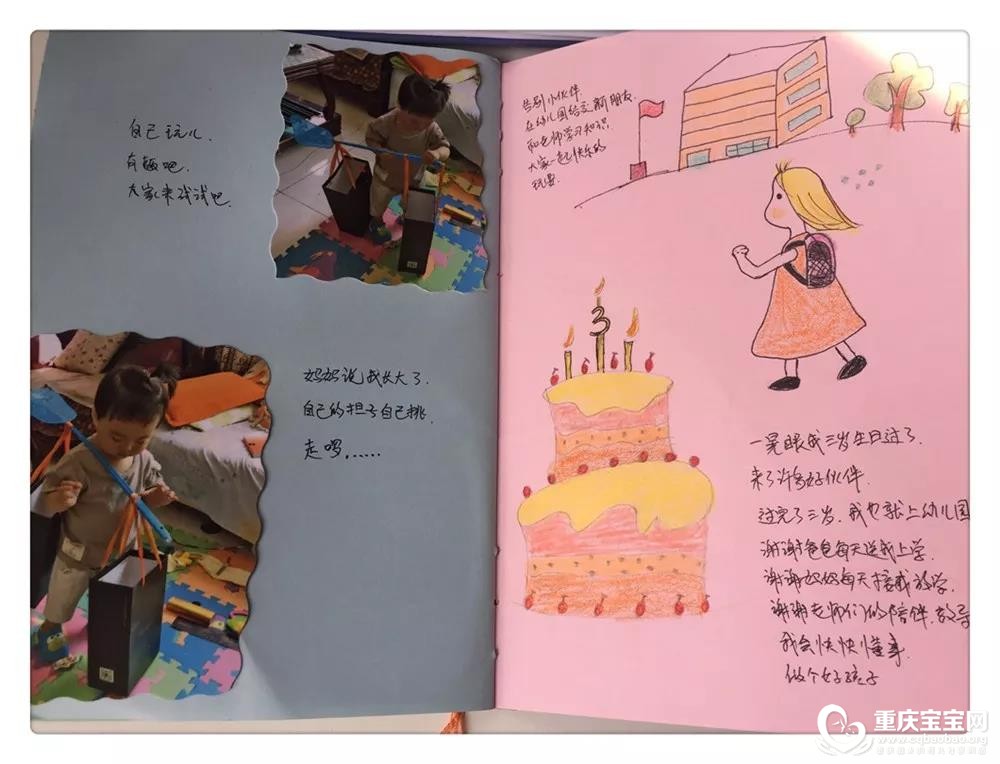 自己玩儿.
有趣吧.
大家来试试吧.
妈妈说我长大了.
自己的担子自己挑.
走啰......
告别小伙伴.
在幼儿园结交新朋友.
和老师学习知识.
大家一起快乐的
玩耍.
3
一晃眼我三岁生日过了.
来了许多好伙伴.
过完了三岁.我也就上幼儿园
谢谢爸爸每天送我上学.
谢谢妈妈每天接我放学.
谢谢老师们的陪伴.教导
我会快快懂事.
做个好孩子
重庆宝宝网
www.cqbaobao.org